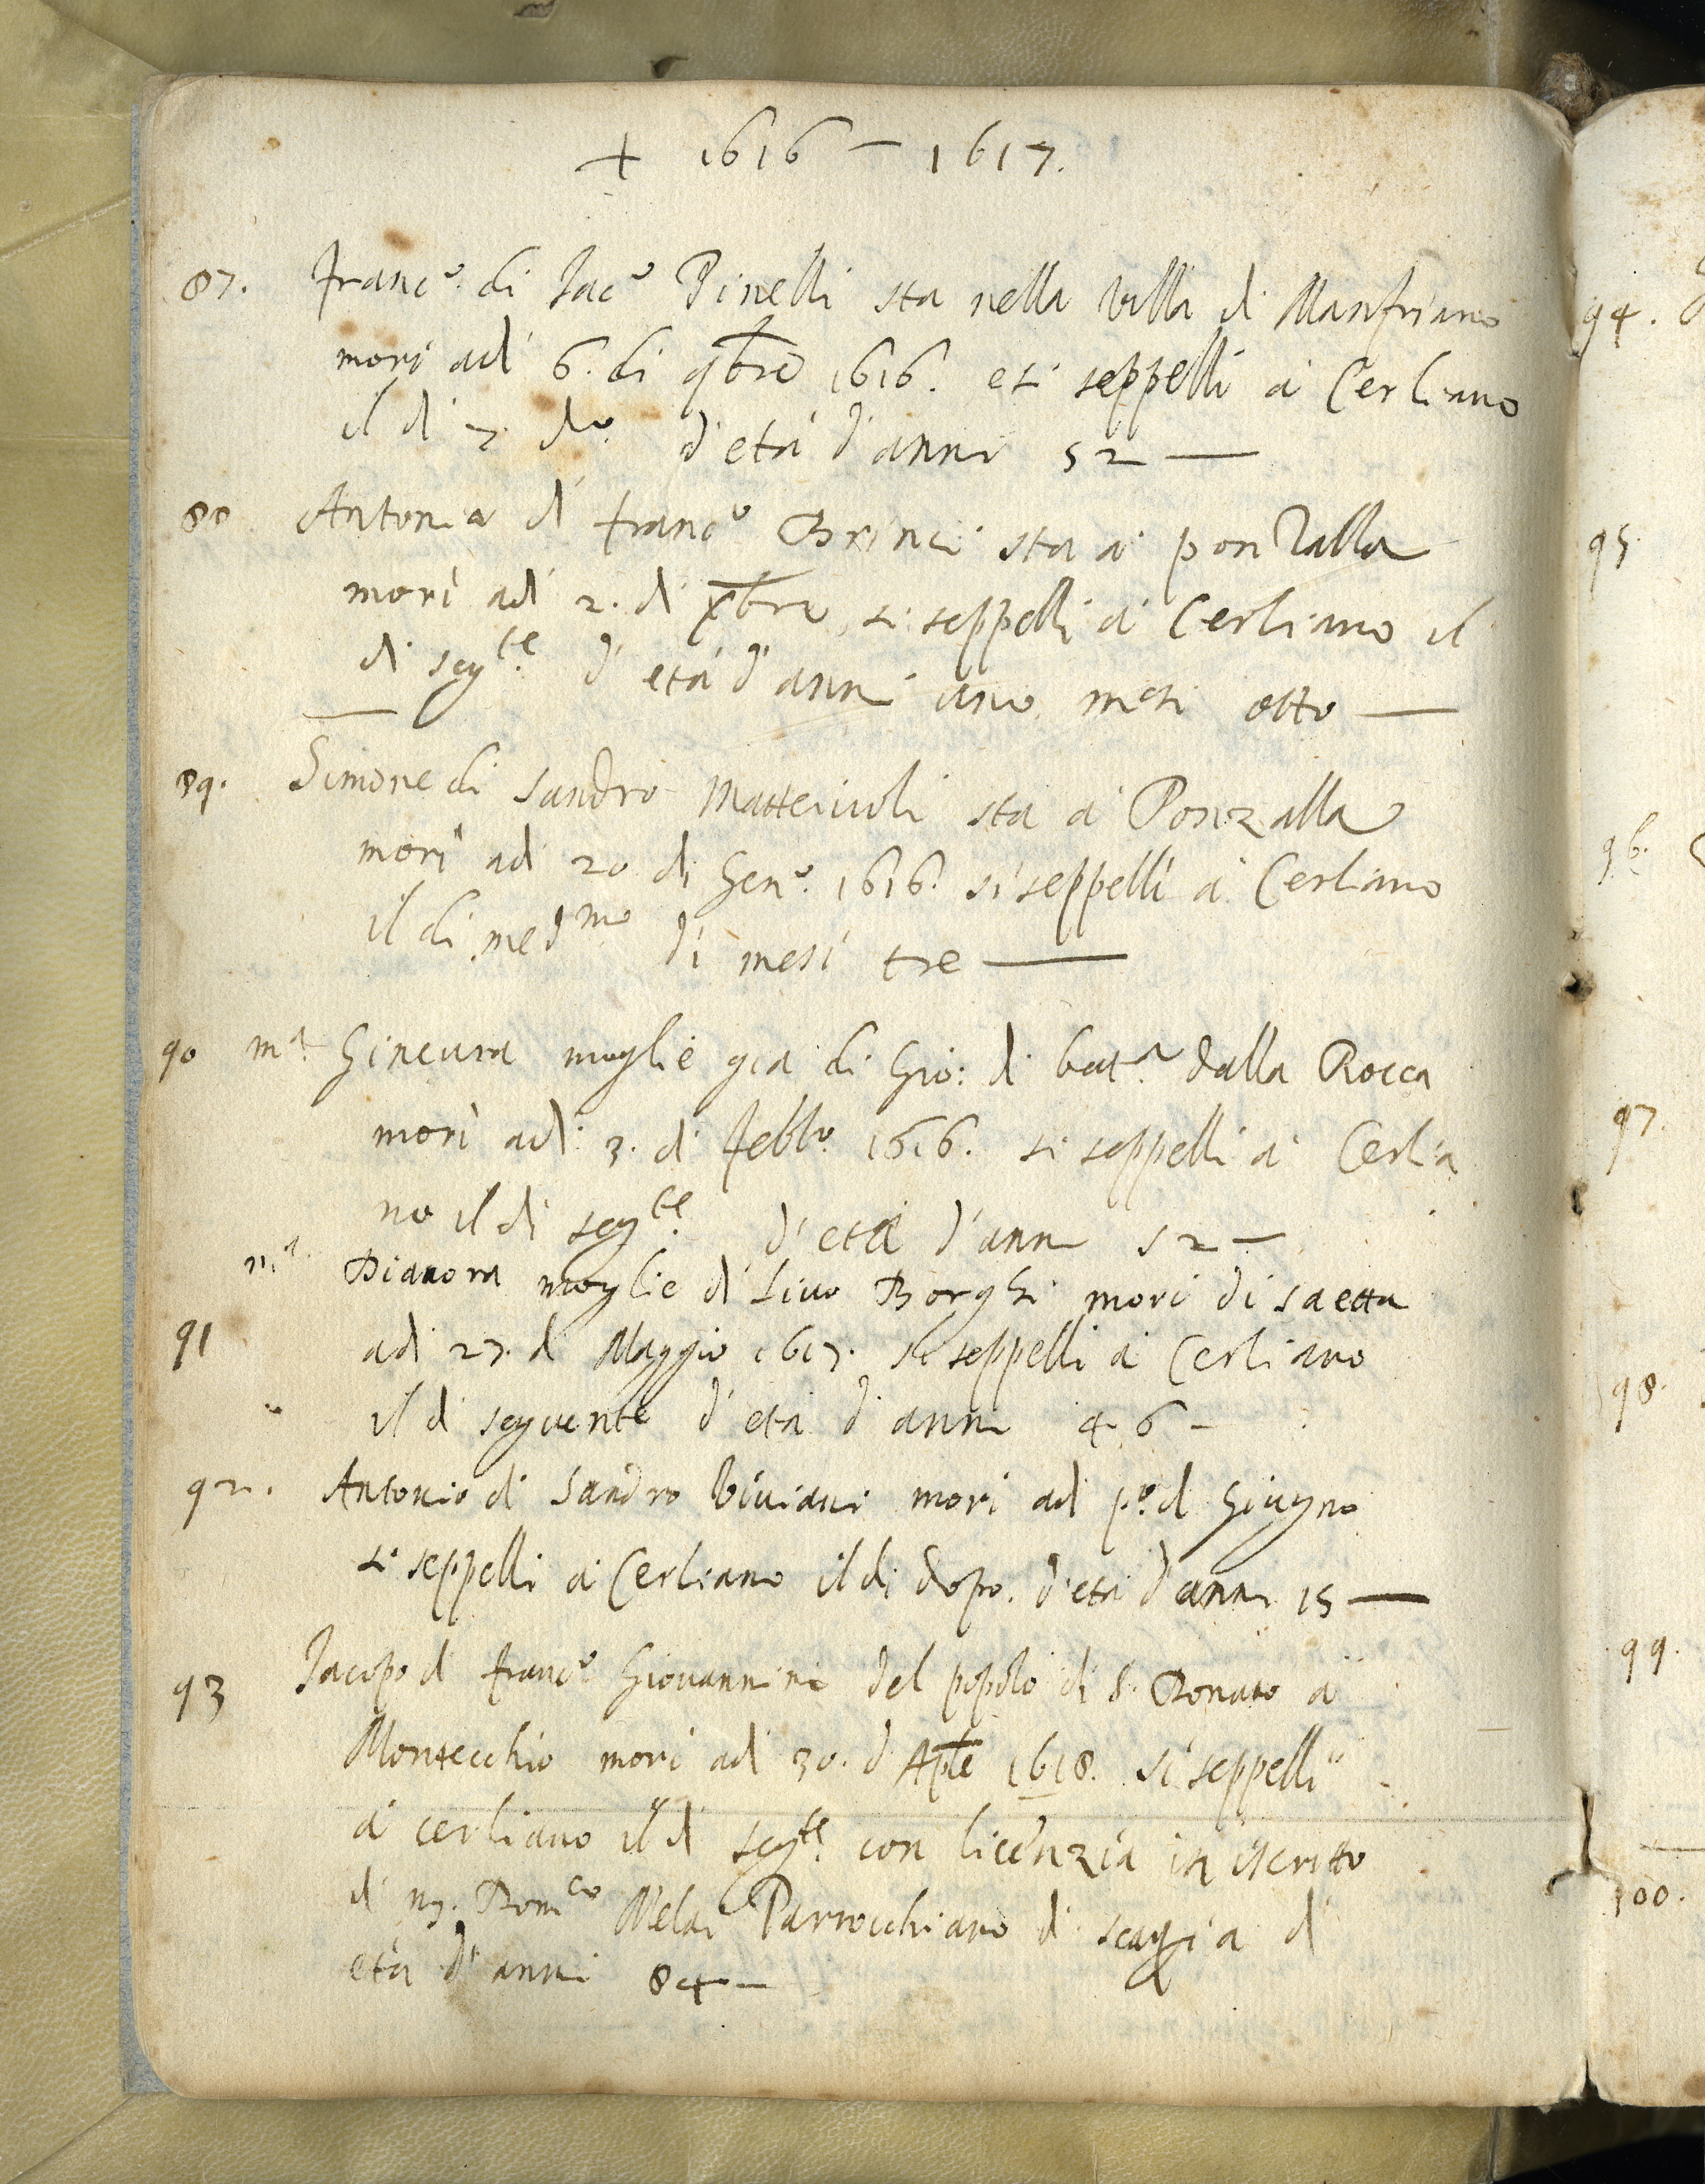 + 1616 — 1617.
87. Franc.o di Jac.o Pinelli sta nella villa di Manfriano
mori adi 6. di 9bre 1616. e si seppelli a Cerliano
il di 7. d.o d'eta d'anni 52 —
88 Antonia di franc.o Brinci sta a ponzalla
mori adi 2. di xbre, si seppelli a Cerliano il
di seg.te d'eta d'anni uno mesi otto —
89. Simone di Sandro Matteiuoli sta a Ponzalla
mori adi 20 di Gen.o 1616. si seppelli a Cerliano
il di med.mo di mesi tre —
90 m.a Gineura moglie gia di Gio: di bat.a dalla Rocca
mori adi 3. di febb.o 1616. si seppelli a Cerlia
no il di seg.te d'eta d'anni 52 —
m.a Dianora moglie di Liuo Borghi mori di saetta
91 adi 27. di Maggio 1617. si seppelli a Cerliano
il di seguente d'eta d'anni 46 —
92. Antonio di Sandro Viuiani mori adi p.o di Giugno
si seppelli a Cerliano il di dopo. d'eta d'anni 15 —
93 Jacopo di franc.o Giouannini del popolo di S. Donato a
Montecchio mori adi 30. d'Aple 1618. si seppelli
a cerliano il di seg.te con licenzia in iscritto
di m. Dom.co Melai Parrocchiano di scagia di
eta d'anni 84 —
94.
95
96.
97.
98.
99.
100.